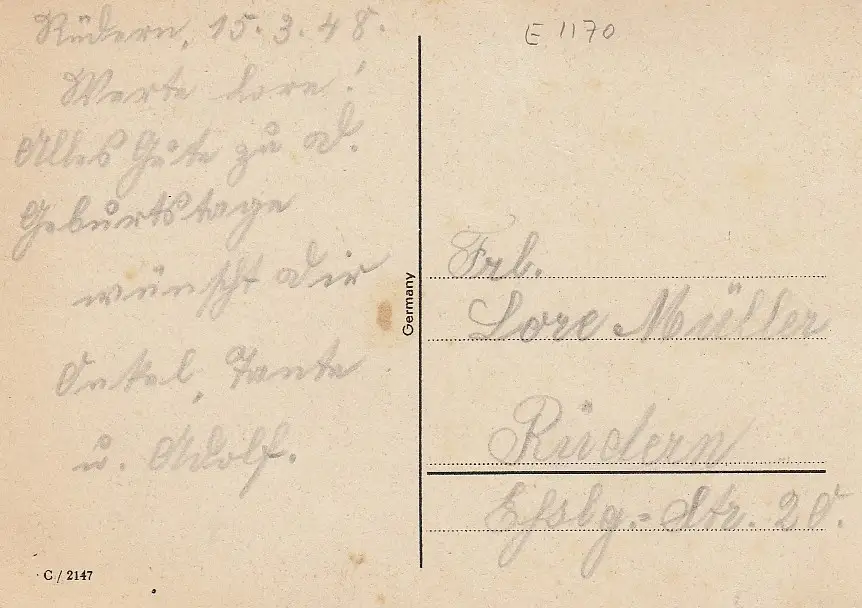 Rüdern, 15.3.48.
Werte Lore!
Alles Gute zu D.
Geburtstage
wünscht Dir
Onkel, Tante
u. Adolf.
E 1170
Germany
Frl.
Lore Müller
Rüdern
Str. 20.
C / 2147